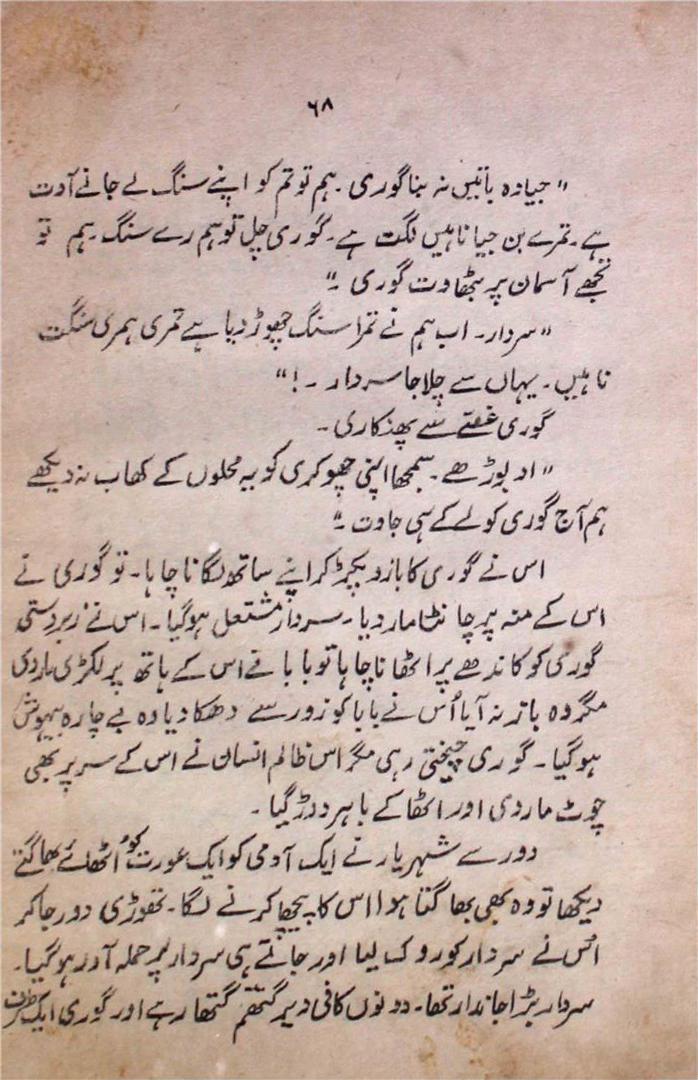 ۶۸
" جیادہ باتیں نہ بنا گوری ۔ ہم تو تم کو اپنے سنگ لے جانے آوت
ہے ۔ تمرے بن جیا ناہیں لگت ہے ۔ گوری چل تو ہم رے سنگ ۔ ہم تو
تجھے آسمان پر بٹھاوت گوری ۔ "
" سردار ۔ اب ہم نے تمرا سنگ چھوڑ دیا ہے تمری ہمری سنگت
ناہیں ۔ یہاں سے چلا جا سردار ۔ ! "
گوری غصّے سے پھنکاری ۔
" او بوڑھے ۔ سمجھا اپنی چھوکری کو یہ محلوں کے کھاب نہ دیکھے
ہم آج گوری کو لے کے ہی جاوت ۔ "
اس نے گوری کا بازو پکڑ کر اپنے ساتھ لگانا چاہا ۔ تو گوری نے
اس کے منہ پر چانٹا مار دیا ۔ سردار مشتعل ہوگیا ۔ اس نے زبردستی
گوری کو کاندھے پر اٹھانا چاہا تو بابا نے اس کے ہاتھ پر لکڑی مار دی
مگر وہ باز نہ آیا اُس نے بابا کو زور سے دھکا دیا وہ بے چارہ بیہوش
ہوگیا ۔ گوری چیختی رہی مگر اس ظالم انسان نے اس کے سر پر بھی
چوٹ مار دی اور اٹھا کے باہر دوڑ گیا ۔
دور سے شہریار نے ایک آدمی کو ایک عورت کو اٹھائے بھاگتے
دیکھا تو وہ بھی بھاگتا ہوا اس کا پیچھا کرنے لگا ۔ تھوڑی دور جاکر
اُس نے سردار کو روک لیا اور جاتے ہی سردار پر حملہ آور ہوگیا ۔
سردار بڑا جاندار تھا ۔ دونوں کافی دیر گتھم گتھا رہے اور گوری ایک طرف